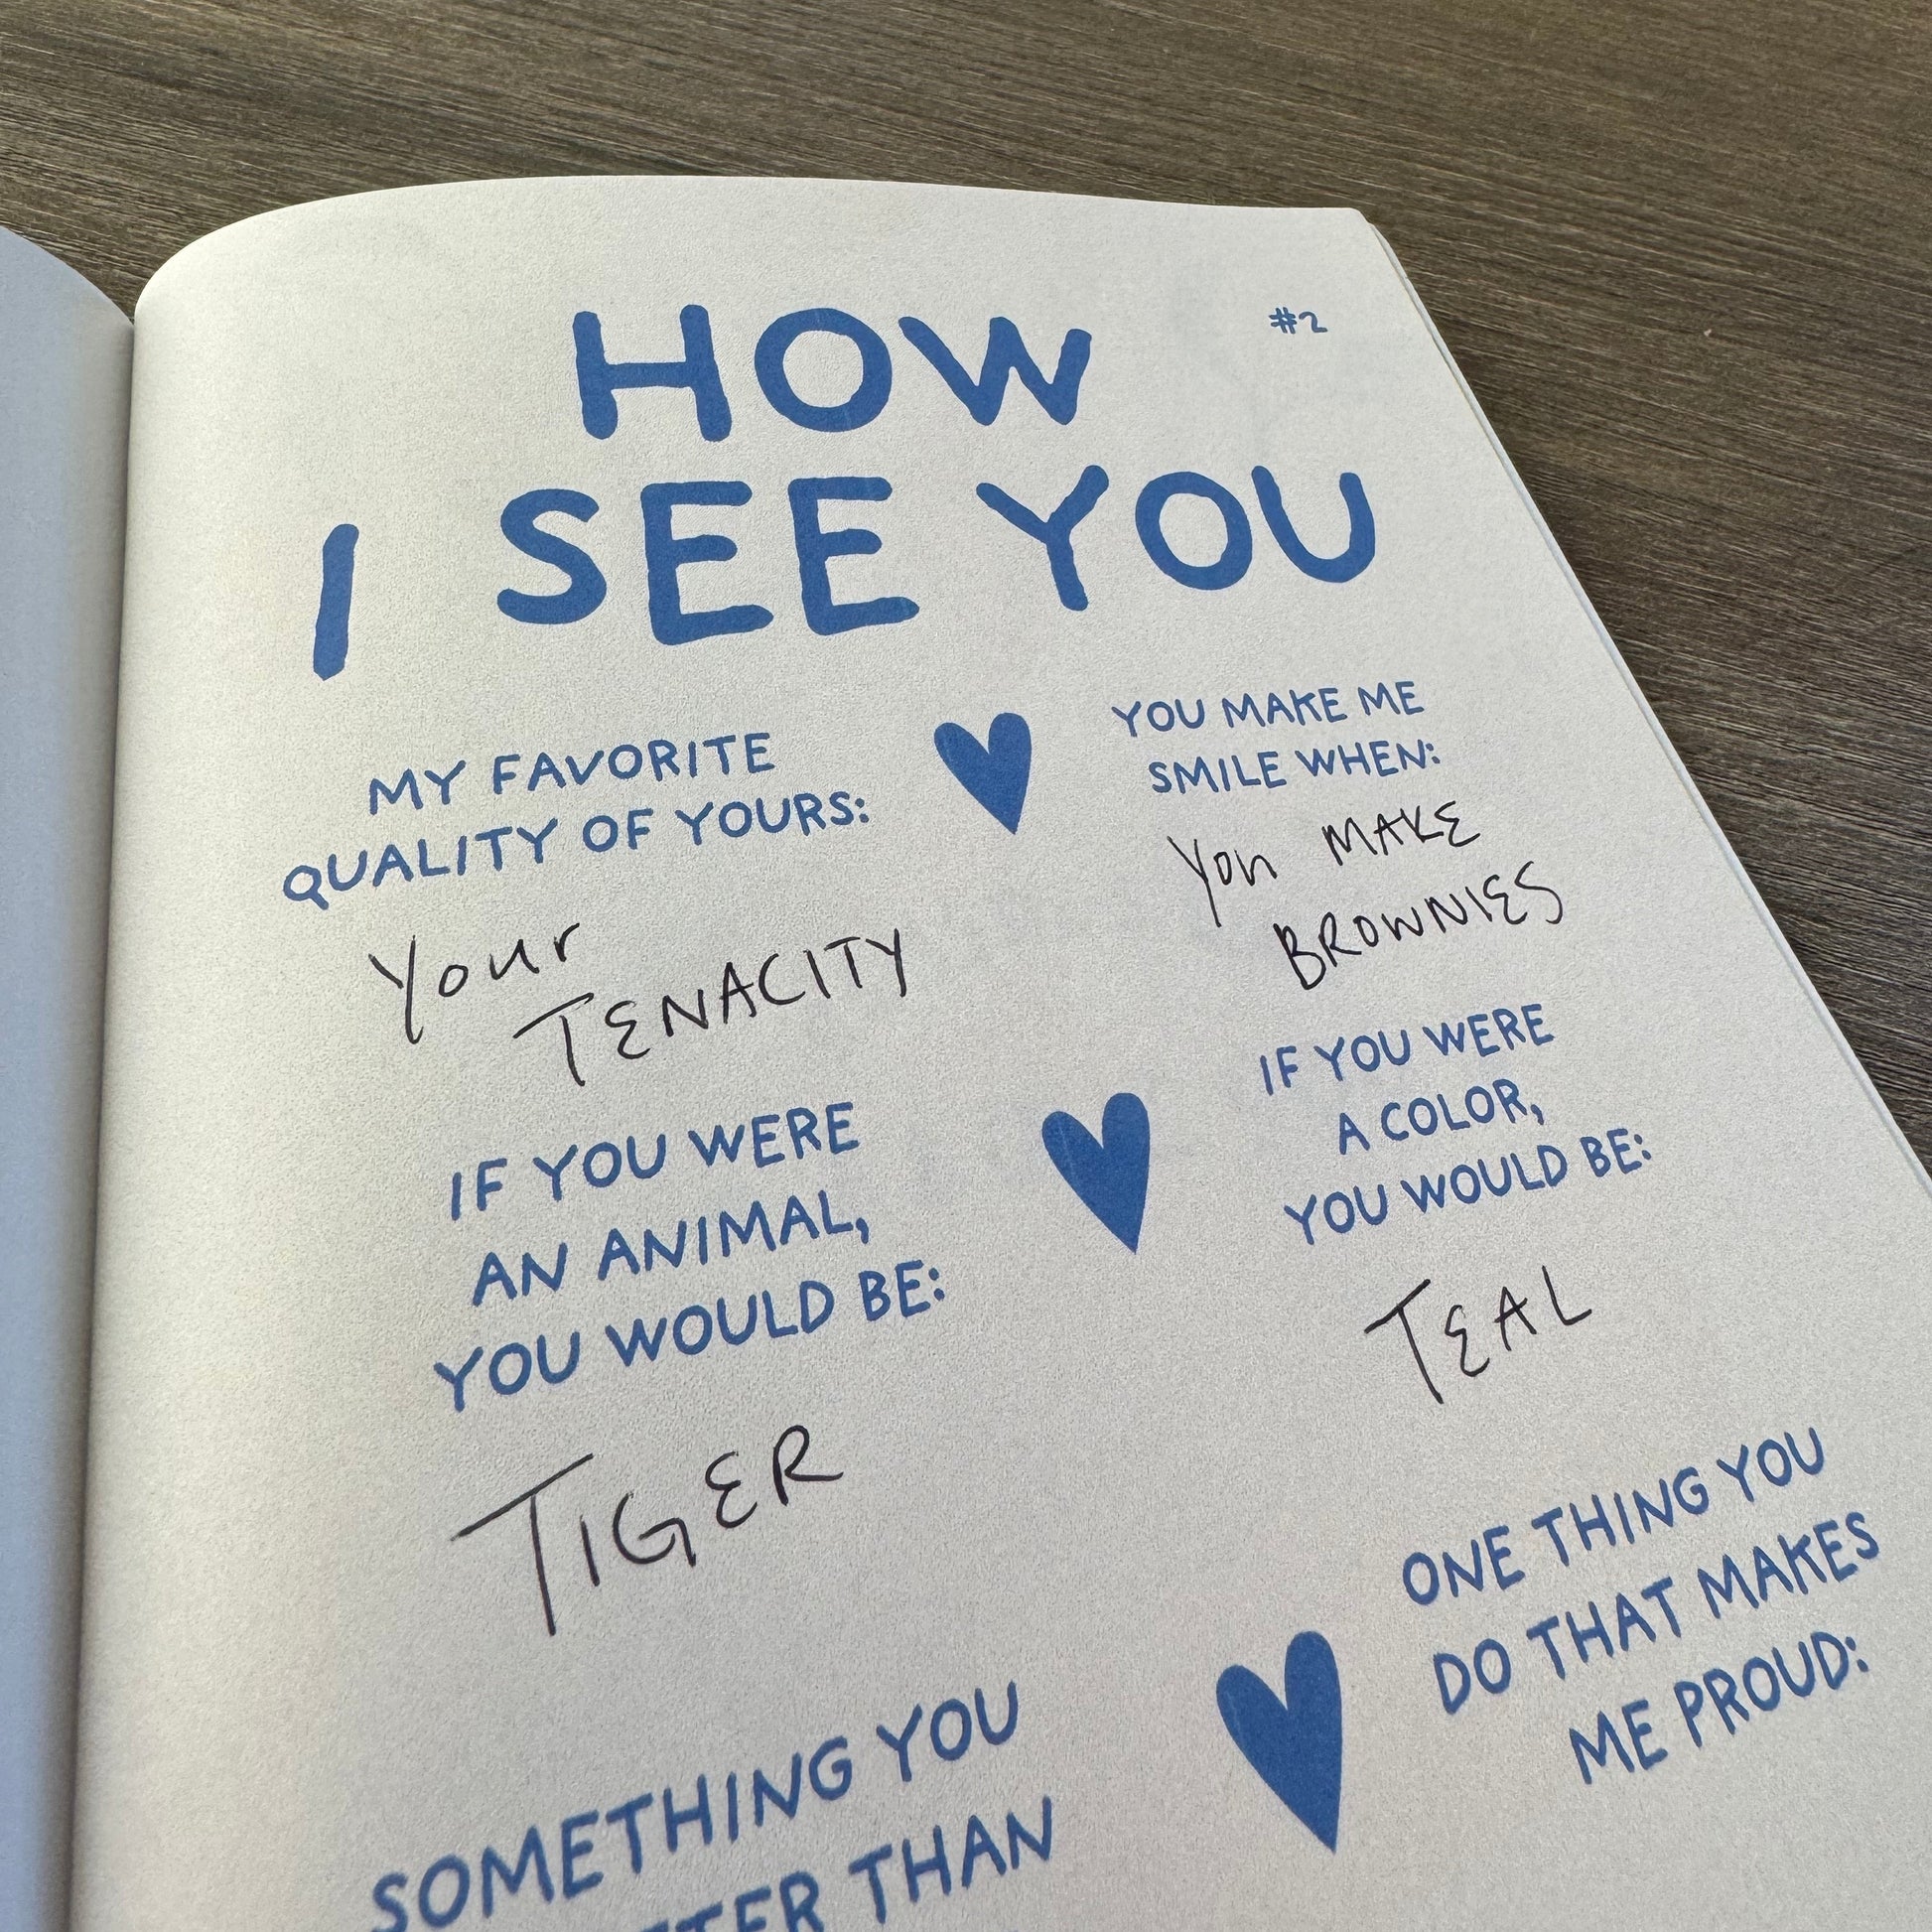 #2
HOW
I SEE YOU
MY FAVORITE
QUALITY OF YOURS:
Your
TENACITY
YOU MAKE ME
SMILE WHEN:
You MAKE
BROWNIES
IF YOU WERE
AN ANIMAL,
YOU WOULD BE:
TIGER
IF YOU WERE
A COLOR,
YOU WOULD BE:
TEAL
SOMETHING YOU
THAN
ONE THING YOU
DO THAT MAKES
ME PROUD: